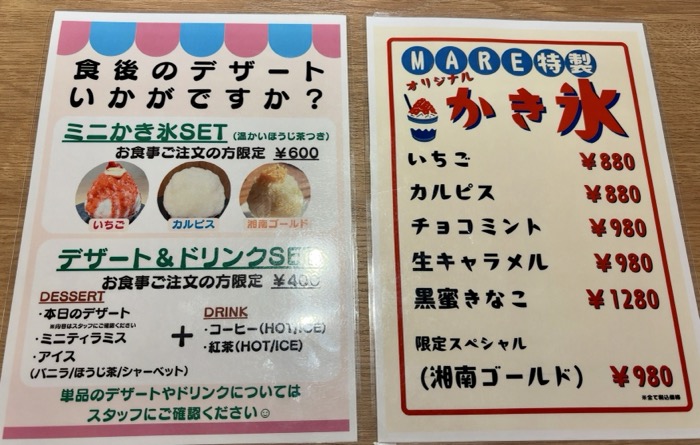 食後のデザート
いかがですか？
ミニかき氷SET（温かいほうじ茶つき）
お食事ご注文の方限定 ￥600
いちご カルピス 湘南ゴールド
デザート＆ドリンクSET
お食事ご注文の方限定 ￥400
DESSERT
・本日のデザート
※内容はスタッフにご確認ください
・ミニティラミス
・アイス
（バニラ/ほうじ茶/シャーベット）
+
DRINK
・コーヒー（HOT/ICE）
・紅茶（HOT/ICE）
単品のデザートやドリンクについては
スタッフにご確認ください☺
MARE特製
オリジナル
かき氷
いちご ￥880
カルピス ￥880
チョコミント ￥980
生キャラメル ￥980
黒蜜きなこ ￥1280
限定スペシャル
（湘南ゴールド） ￥980
※全て税込価格